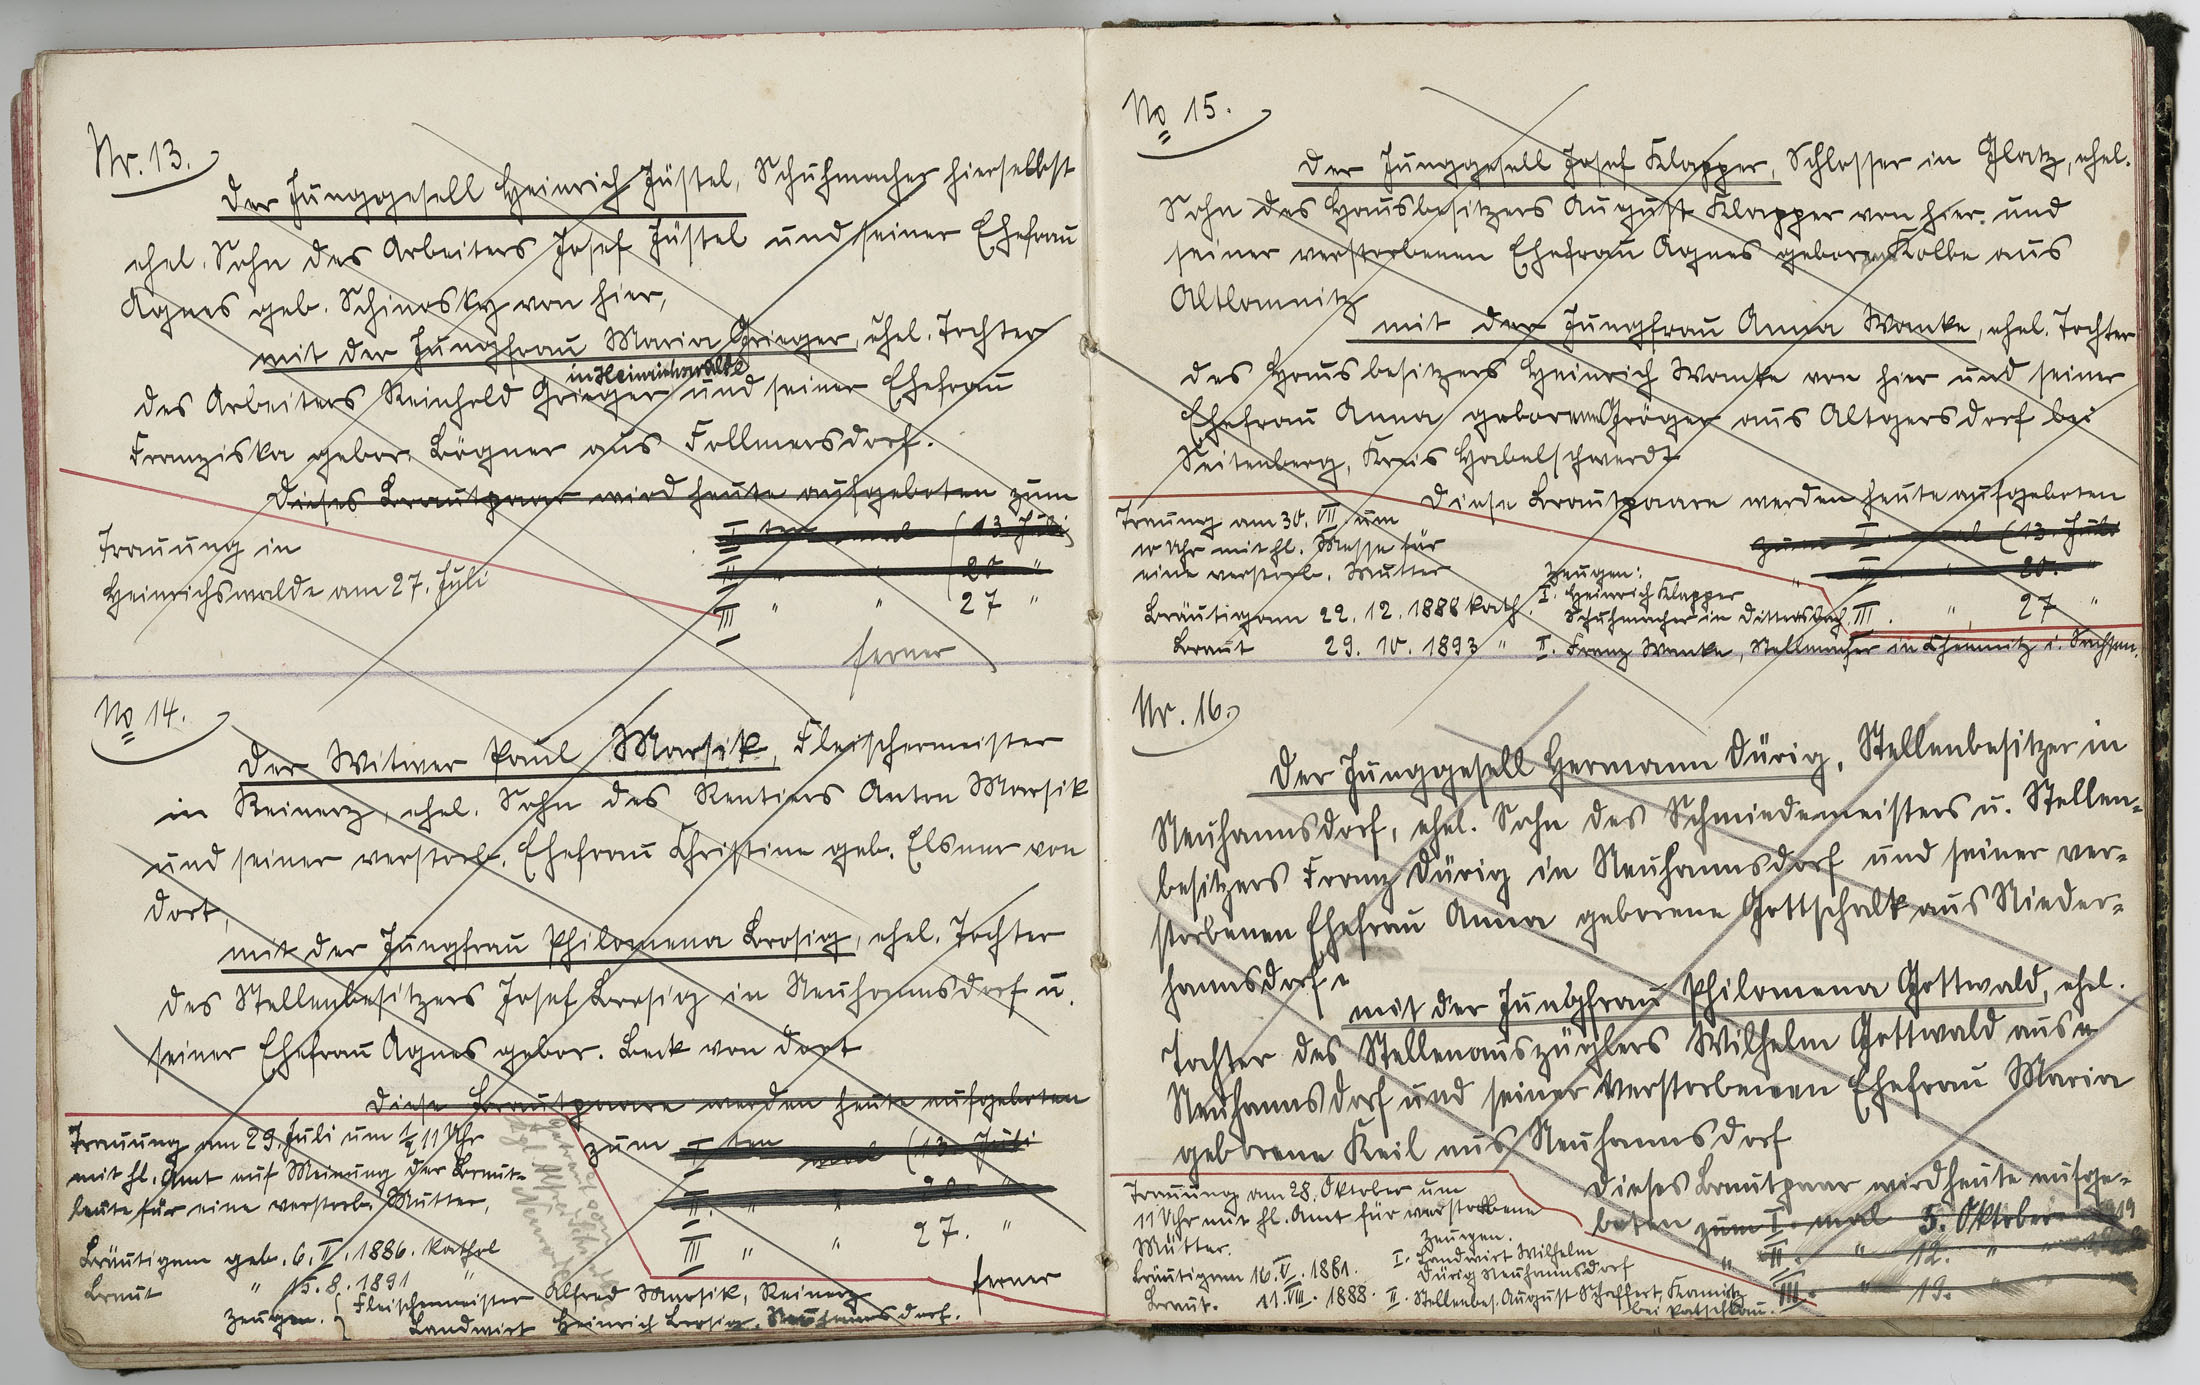 Nr. 13.
Der Junggesell Heinrich Jüstel, Schuhmacher hierselbst
ehel. Sohn des Arbeiters Josef Jüstel und seiner Ehefrau
Agnes geb. Schinosky von hier,
mit der Jungfrau Maria Grieger, ehel. Tochter
in Heinrichswalde
des Arbeiters Reinhold Grieger und seiner Ehefrau
Franziska gebor. Bögner aus Follmersdorf.
Dieses Brautpaar wird heute aufgeboten zum
I ten mal (13 Juli)
II " " (20 "
III " " 27 "
Trauung in
Heinrichswalde am 27. Juli
ferner
No 14.
Der Witwer Paul Marsik, Fleischermeister
in Reinerz, ehel. Sohn des Rentiers Anton Marsik
und seiner verstorb. Ehefrau Christine geb. Elsner von
dort,
mit der Jungfrau Philomena Brosig, ehel. Tochter
des Stellenbesitzers Josef Brosig in Neuhannsdorf u.
seiner Ehefrau Agnes gebor. Beck von dort
Diese Brautpaare werden heute aufgeboten
zum I ten mal (13. Juli
II. " " 20. "
III " " 27. "
Trauung am 29. Juli um ½ 11 Uhr
mit hl. Amt auf Meinung der Braut-
leute für eine verstorb. Mutter,
Bräutigam geb. 6. II. 1886. kathol
Braut " 15. 8. 1891 "
Zeugen. { Fleischermeister Alfred Marsik, Reinerz
Landwirt Heinrich Brosig, Neuhannsdorf.
ferner
No 15.
Der Junggesell Josef Klapper, Schlosser in Glatz, ehel.
Sohn des Hausbesitzers August Klapper von hier. und
seiner verstorbenen Ehefrau Agnes geborene Kolbe aus
Altlomnitz
mit der Jungfrau Anna Wanke, ehel. Tochter
des Hausbesitzers Heinrich Wanke von hier und seiner
Ehefrau Anna geborenen Gröger aus Altgersdorf bei
Seitenberg, Kreis Habelschwerdt
Diese Brautpaare werden heute aufgeboten
zum I. mal (13. Juli
" II. " 20. "
III. " 27 "
Trauung am 30. VII um
10 Uhr mit hl. Messe für
eine verstorb. Mutter
Bräutigam 22. 12. 1888 kath.
Braut 29. 10. 1893 "
Zeugen:
I. Heinrich Klapper
Schuhmacher in Dittersbach
II. Franz Wanke, Stellmacher in Chemnitz i. Sachsen.
Nr. 16.
Der Junggesell Hermann Dürig, Stellenbesitzer in
Neuhannsdorf, ehel. Sohn des Schmiedemeisters u. Stellen-
besitzers Franz Dürig in Neuhannsdorf und seiner ver-
storbenen Ehefrau Anna geborene Gottschalk aus Nieder-
hannsdorf
mit der Jungfrau Philomena Gottwald, ehel.
Tochter des Stellenauszüglers Wilhelm Gottwald aus
Neuhannsdorf und seiner verstorbenen Ehefrau Maria
geborene Keil aus Neuhannsdorf
Dieses Brautpaar wird heute aufge-
boten zum I. mal 5. Oktober 1919
" II. " 12. " "
III. " 19. " "
Trauung am 28. Oktober um
11 Uhr mit hl. Amt für verstorbene
Mütter.
Bräutigam 16. V. 1881.
Braut. 11. VIII. 1888.
Zeugen.
I. Landwirt Wilhelm
Dürig Neuhannsdorf
II. Stellenbes. August Schaffert, Kamnitz
bei Patschkau.